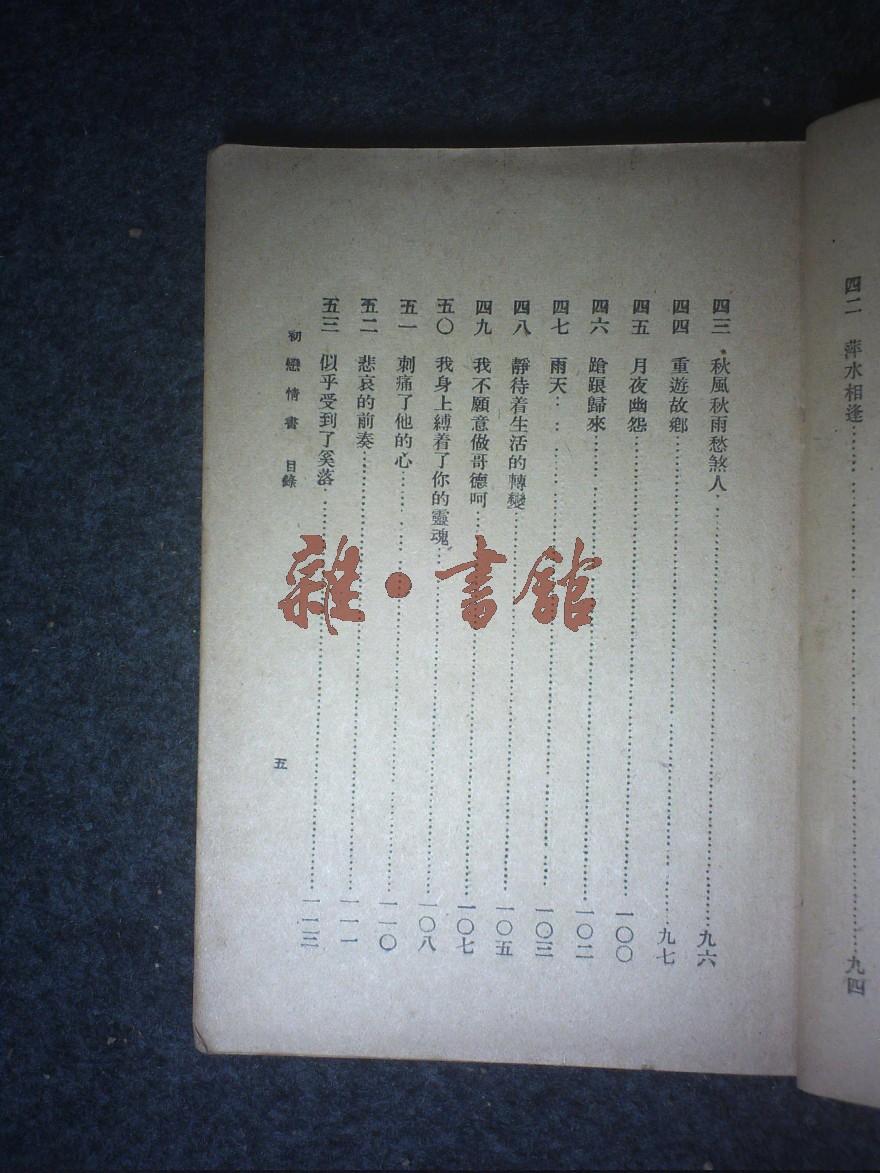 四二　萍水相逢……九四
四三　秋風秋雨愁煞人……九六
四四　重遊故鄉……九七
四五　月夜幽怨……一〇〇
四六　蹌踉歸來……一〇二
四七　雨天……一〇三
四八　靜待着生活的轉變……一〇五
四九　我不願意做哥德呵……一〇七
五〇　我身上縛着了你的靈魂……一〇八
五一　刺痛了他的心……一一〇
五二　悲哀的前奏……一一一
五三　似乎受到了奚落……一一三
初戀情書　目錄
五
雜・書館